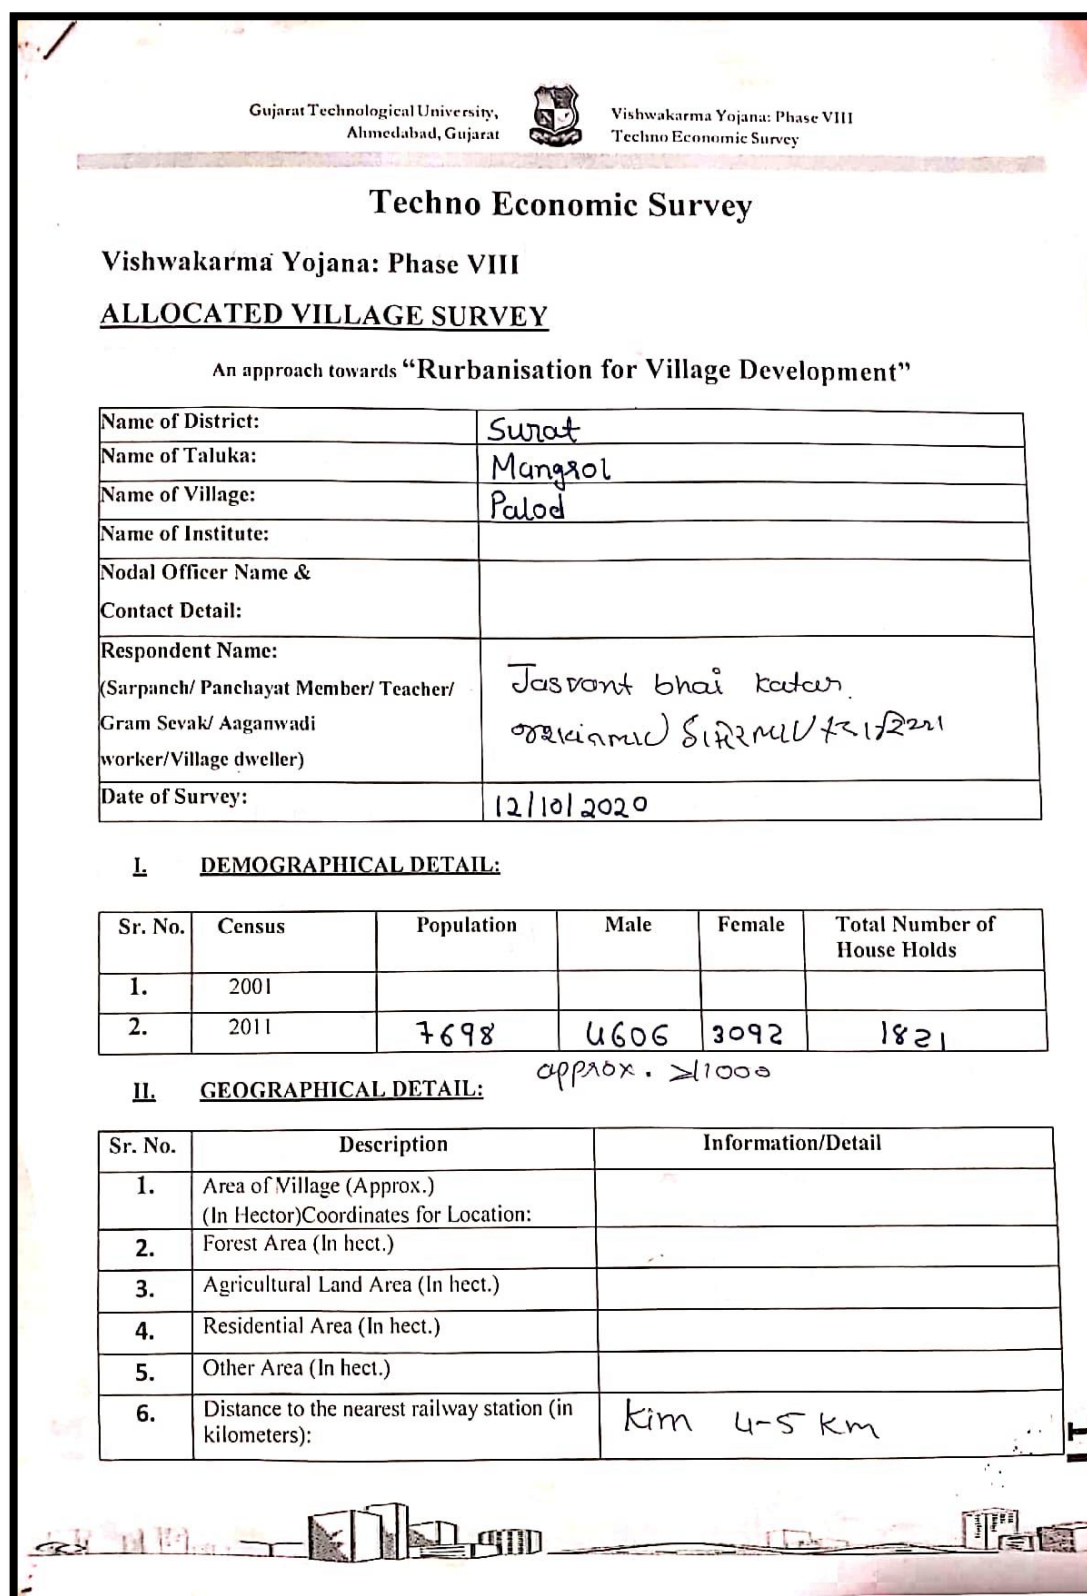 Gujarat Technological University,
Ahmedabad, Gujarat
Vishwakarma Yojana: Phase VIII
Techno Economic Survey
Techno Economic Survey
Vishwakarma Yojana: Phase VIII
ALLOCATED VILLAGE SURVEY
An approach towards “Rurbanisation for Village Development”
Name of District: Surat
Name of Taluka: Mangrol
Name of Village: Palod
Name of Institute:
Nodal Officer Name &
Contact Detail:
Respondent Name:
(Sarpanch/ Panchayat Member/ Teacher/ Jasvant bhai
Gram Sevak/ Aaganwadi
worker/Village dweller)
Date of Survey: 12/10/2020
I. DEMOGRAPHICAL DETAIL:
Sr. No. Census Population Male Female Total Number of
House Holds
1. 2001
2. 2011 7698 4606 3092 1821
approx.
II. GEOGRAPHICAL DETAIL:
Sr. No. Description Information/Detail
1. Area of Village (Approx.)
(In Hector)Coordinates for Location:
2. Forest Area (In hect.)
3. Agricultural Land Area (In hect.)
4. Residential Area (In hect.)
5. Other Area (In hect.)
6. Distance to the nearest railway station (in
kilometers): Kim 4-5 Km